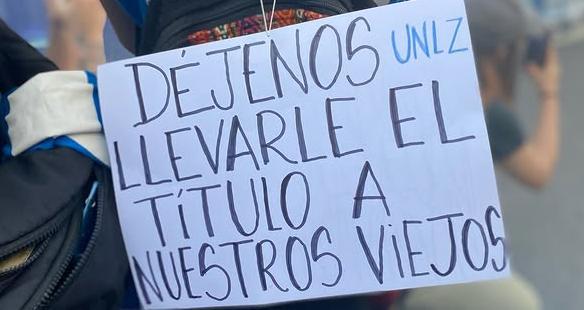 DÉJENOS UNLZ
LLEVARLE EL
TÍTULO A
NUESTROS VIEJOS